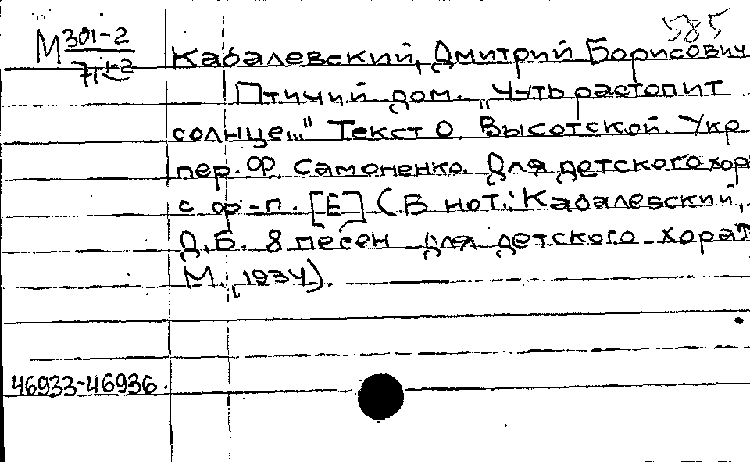 585
М 301-2
Кабалевский, Дмитрий Борисович
Птичий дом. „Чуть растопит
солнце..." Текст О. Высотской. Укр.
пер. Ф. Самоненко. Для детского хор
с ф-п. [Е] (В нот.: Кабалевский,
Д.Б. 8 песен для детского хора.
М., 1934).
46933-46936